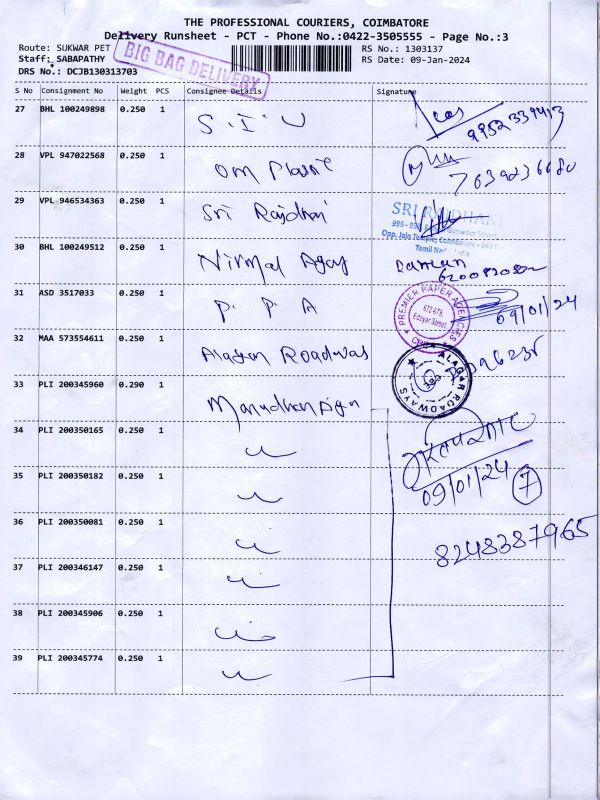 THE PROFESSIONAL COURIERS, COIMBATORE
Delivery Runsheet - PCT - Phone No.:0422-3505555 - Page No.:3
Route: SUKWAR PET
RS No.: 1303137
Staff: SABAPATHY
RS Date: 09-Jan-2024
DRS No.: DCJB130313703
BIG BAG DELIVERY
S No Consignment No Weight PCS Consignee Details Signature
27 BHL 100249898 0.250 1 S.I.U
9952339413
28 VPL 947022568 0.250 1 OM Plastic
29 VPL 946534363 0.250 1 Sri Rajdhani
SRI RAJDHANI
Opp. Jain Temple, Coimbatore - 641
Tamil Nadu, India
30 BHL 100249512 0.250 1 Nirmal Agay
Raman
31 ASD 3517033 0.250 1 P. P. A
PREMIER PAPER AGENCIES
670-675,
CBE
09/01/24
32 MAA 573554611 0.250 1 Alagan Roadwas
ALAGAR ROADWAYS
33 PLI 200345960 0.290 1
34 PLI 200350165 0.250 1
35 PLI 200350182 0.250 1
09/01/24 7
36 PLI 200350081 0.250 1
8248387965
37 PLI 200346147 0.250 1
38 PLI 200345906 0.250 1
39 PLI 200345774 0.250 1